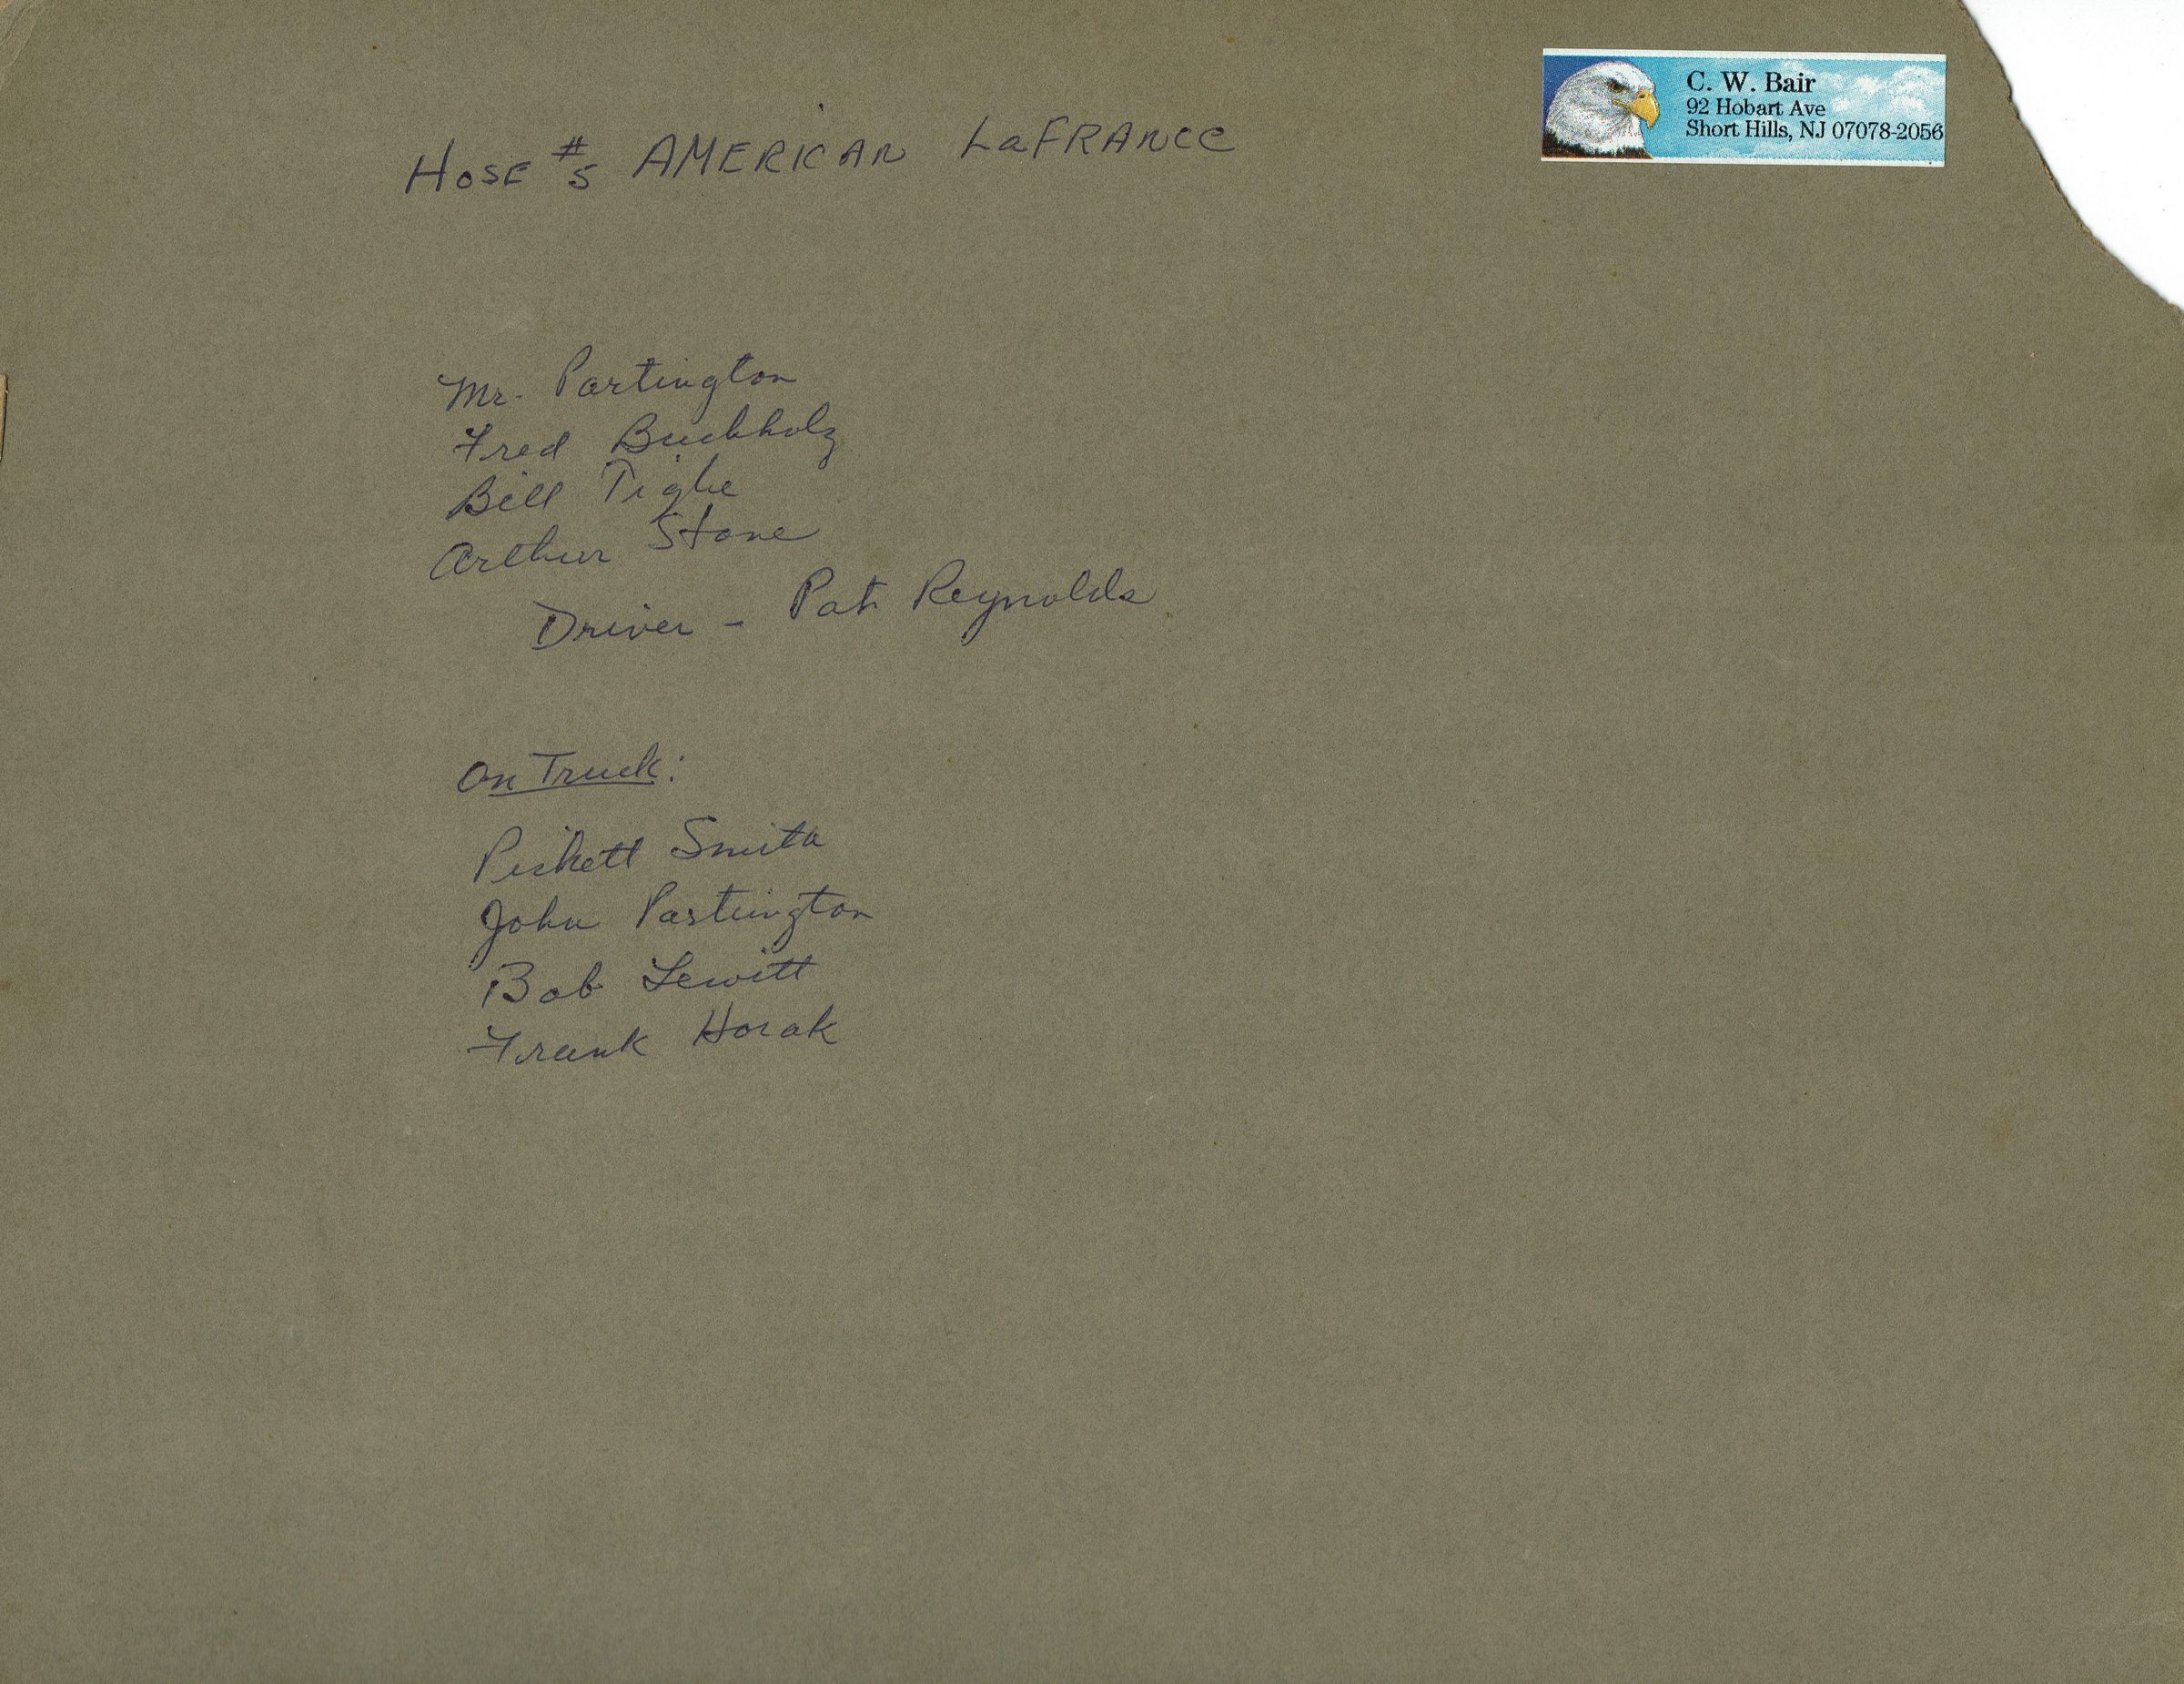 Hose #5 AMERICAN LaFRANCE
C. W. Bair
92 Hobart Ave
Short Hills, NJ 07078-2056
Mr. Partington
Fred Buchholz
Bill Tighe
Arthur Stone
Driver - Pat Reynolds
On Truck:
Smith
John Partington
Bob Lewitt
Frank Horak